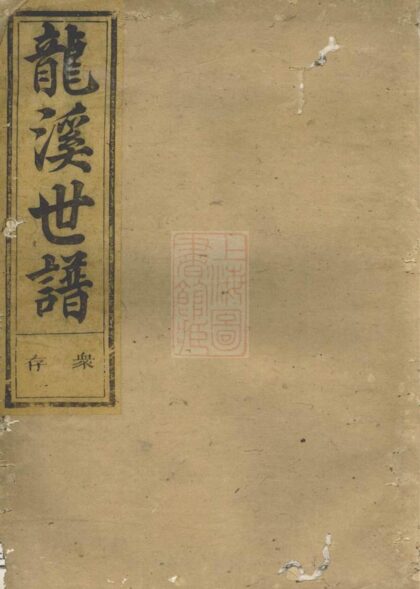 龍溪世譜
衆存
上海圖
書館藏